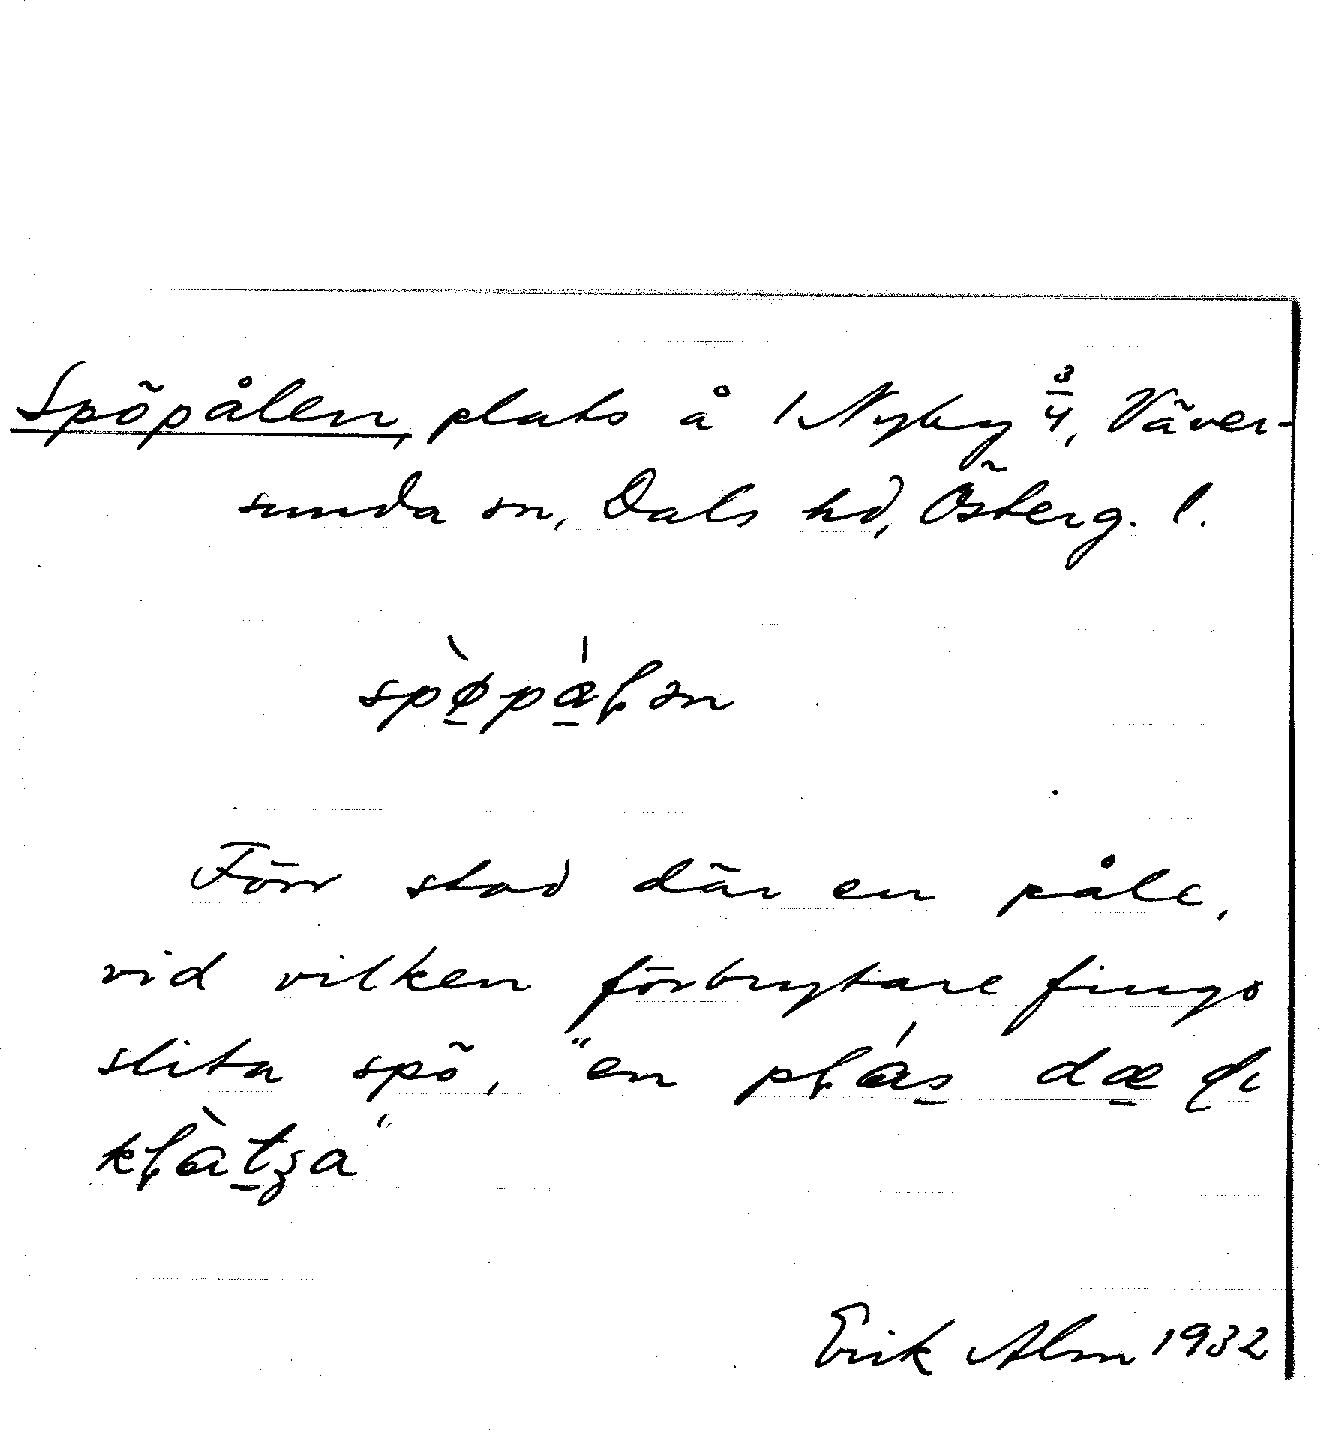 Spöpålen, plats å 1 Nyby 3/4, Väver-
sunda sn, Dals hd, Österg. l.
spø̠̀pa̠̍ɭən
Förr stod där en påle,
vid vilken förbrytare fingo
slita spö, "en
Erik Alm 1932